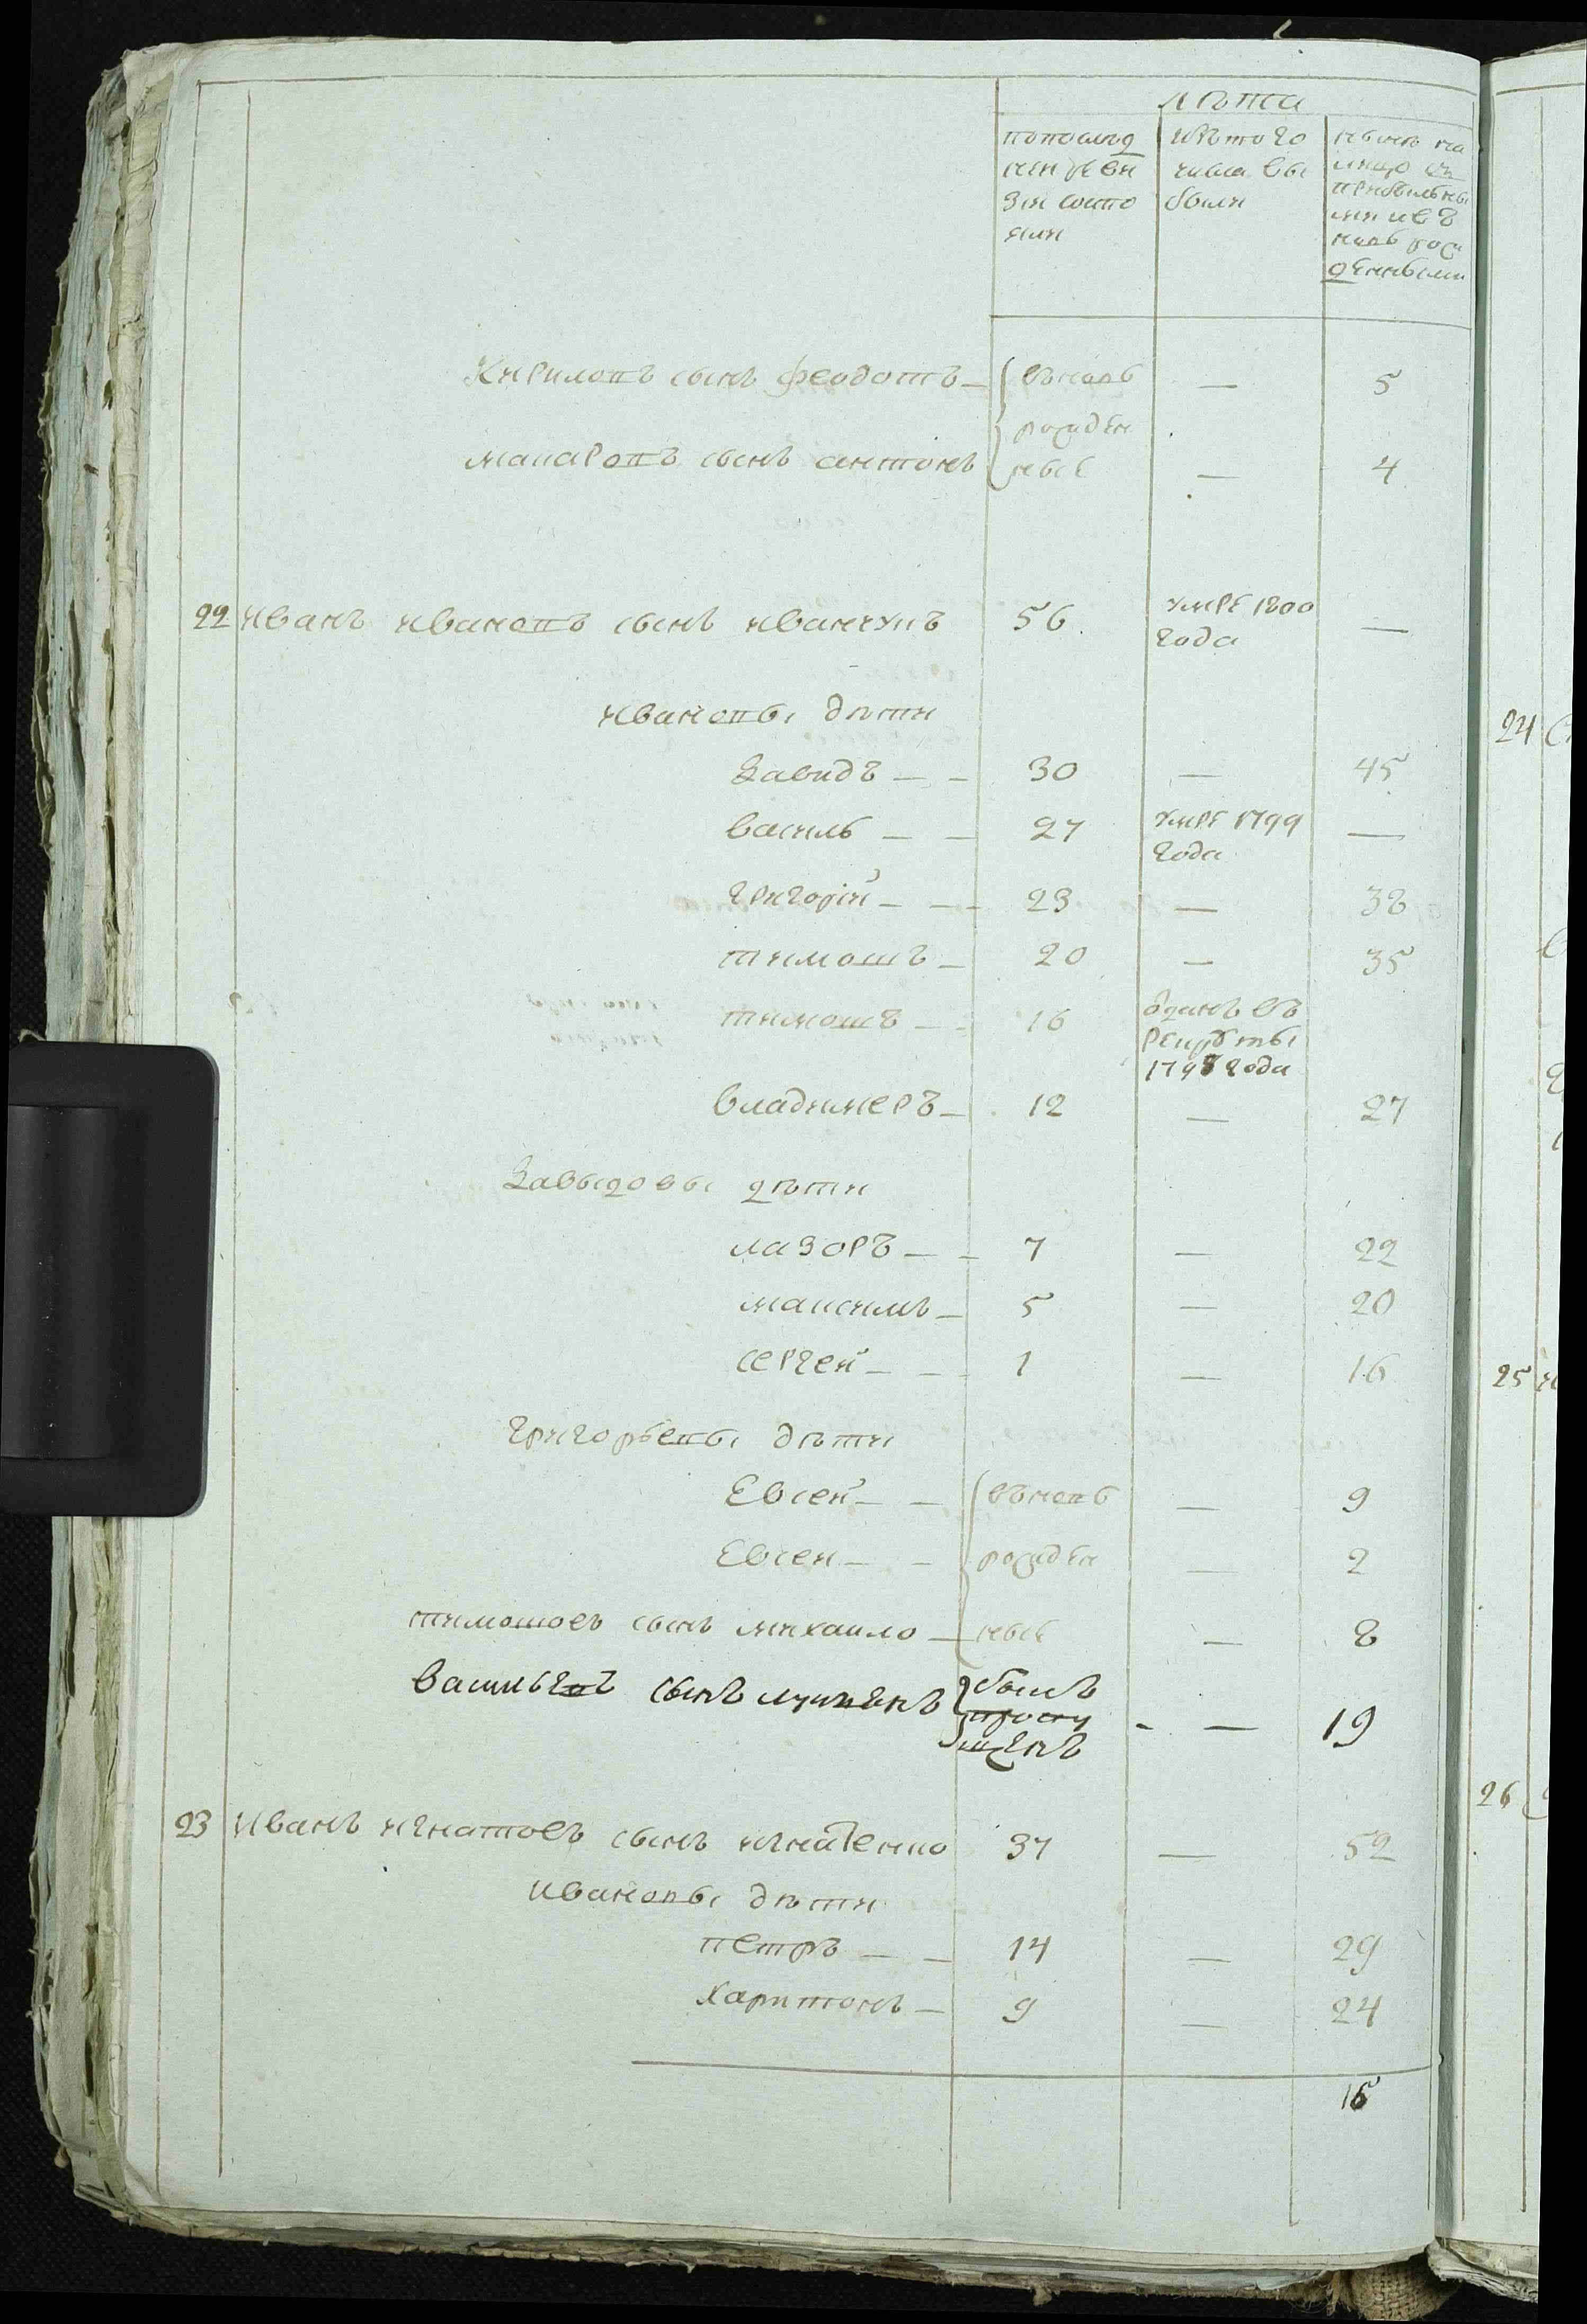 лѣта
попослѣд
ней реви
зіи состо
яли
изъ того
числа вы
были
нынѣ на
лицо съ
прибылы
ми и въ
новь рож
денными
Кириловъ сынъ феодотъ — вьновь — 5
рожден
макаровъ сынъ антонъ ные — 4
22 Иванъ ивановъ сынъ иванчукъ 56 умре 1800 —
года
ивановы дѣти
Завидъ — — 30 — 45
василь — — 27 умре 1799 —
года
григорій — — 23 — 38
тимошъ — 20 — 35
тимошъ — — 16 оданъ въ
рекруты
1798 года
владимеръ — 12 — 27
Завыдовы дѣти
лазоръ — — 7 — 22
максимъ — 5 — 20
сергей — — 1 — 16
григорьевы дѣти
Евсей — — вьновь — 9
Евсеи — — рожден — 2
тимошовъ сынъ михаило — ные — 8
васильевъ сынъ лукьянъ былъ - — 19
пропу
щенъ
23 Иванъ игнатовъ сынъ игнатенко 37 — 52
ивановы дѣти
петръ — — 14 — 29
харитонъ — 9 — 24
15
24
25
26